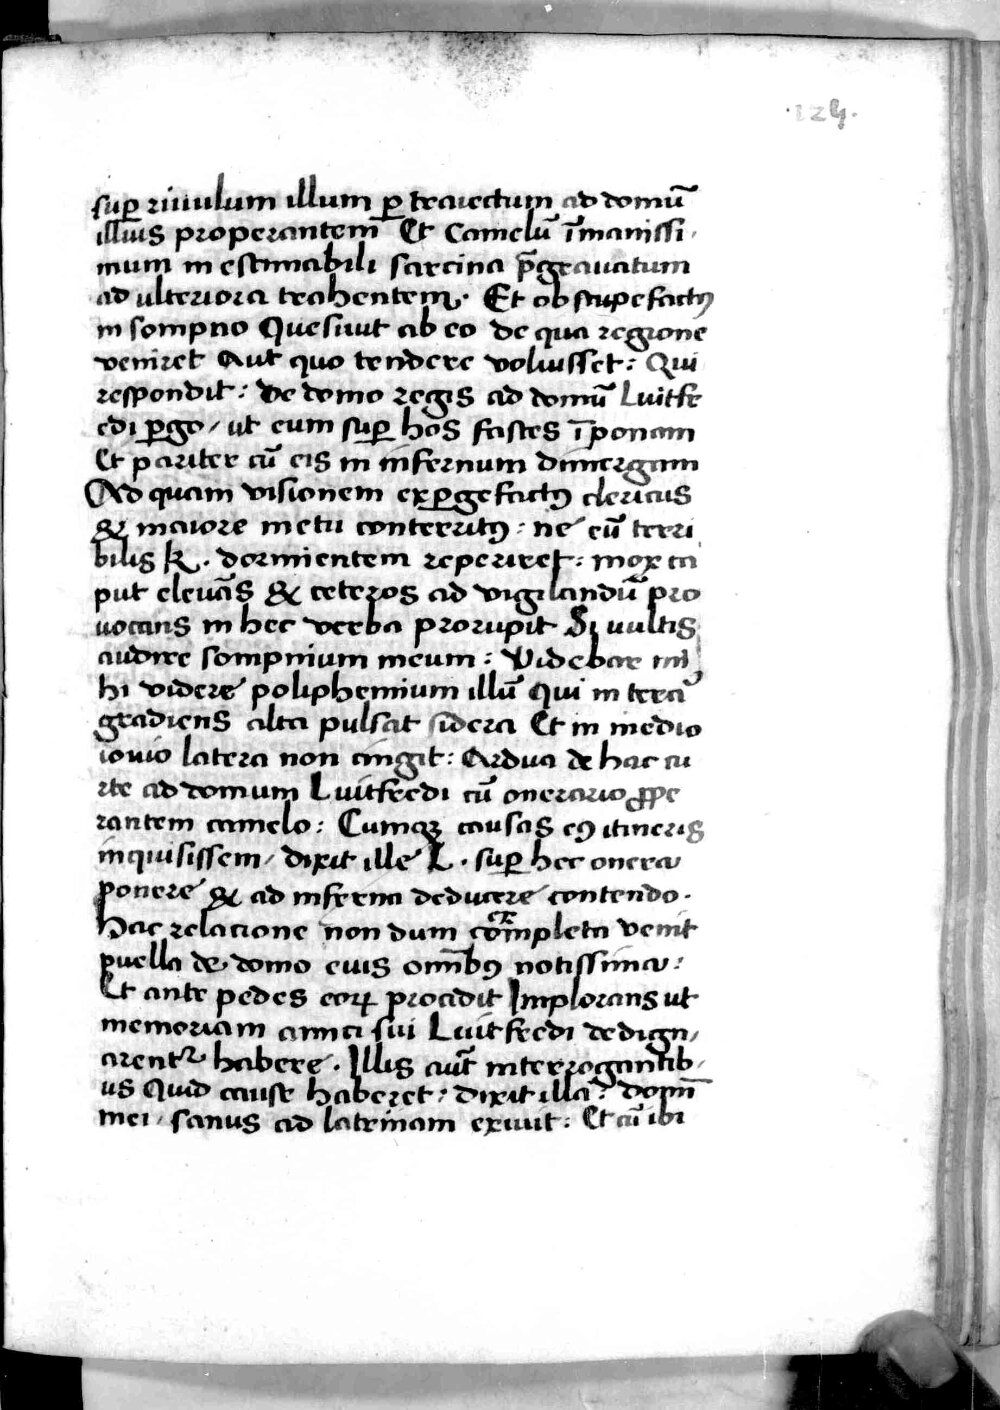 ·124·
suꝑ riuulum illum ꝑ traiectum ad domū
illius properantem Et Camelū īmanissi
mum inestimabili sarcina p̄grauatum
ad ulteriora trahentem. Et obstupefactꝰ
in sompno Quesiuit ab eo de qua regione
veniret Aut quo tendere voluisset: Qui
respondit: de domo regis ad domū Luitfe
edi ꝑgo, ut eum suꝑ hos fastes īponam
Et pariter cū eis in infernum dimergam
Ad quam visionem exꝑgefactꝰ clericus
& maiore metu conterritꝰ: ne eū terri
bilis k. dormientem reperiret: mox ca
put eleuās & ceteros ad vigilandū pro
uocans in hec verba prorupit Si uultis
audire sompnium meum: Videbar mi
hi videre poliphemium illū Qui in tera
gradiens alta pulsat sidera Et in medio
ionio latera non cingit: Ardua de hac cu
rte ad domum Luitfredi cū onerario ꝓpe
rantem camelo: Cumqꝫ causas eꝰ itineris
inquisissem, dixit ille L. suꝑ hec onera
ponere & ad inferna deducere contendo.
Hac relacione non dum cōmpleta venit
puella de domo euis omībꝰ notissima:
Et ante pedes eoꝝ procidit Implorans ut
memoriam amici sui Luitfredi dedign,
arentr habere. Illis aūt interrogantib,
us Quid cause haberet: dixit illa: domī
mei, sanus ad latrinam exiuit: Et cū ibi